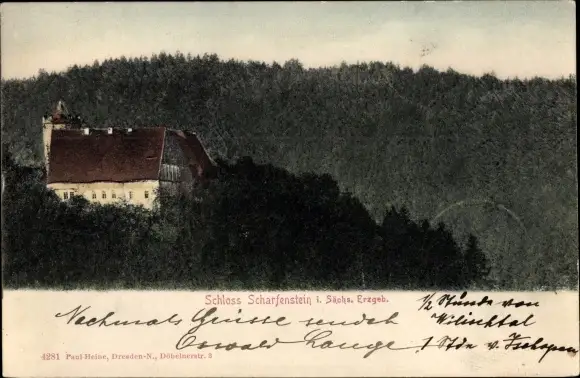 Schloss Scharfenstein i. Sächs. Erzgeb.
½ Stunde von
Wilischtal
Nachmals Grüsse sendet
Oswald Lange
1 Stdn v. Zschopau
4281 Paul Heine, Dresden-N., Döbelnerstr. 3